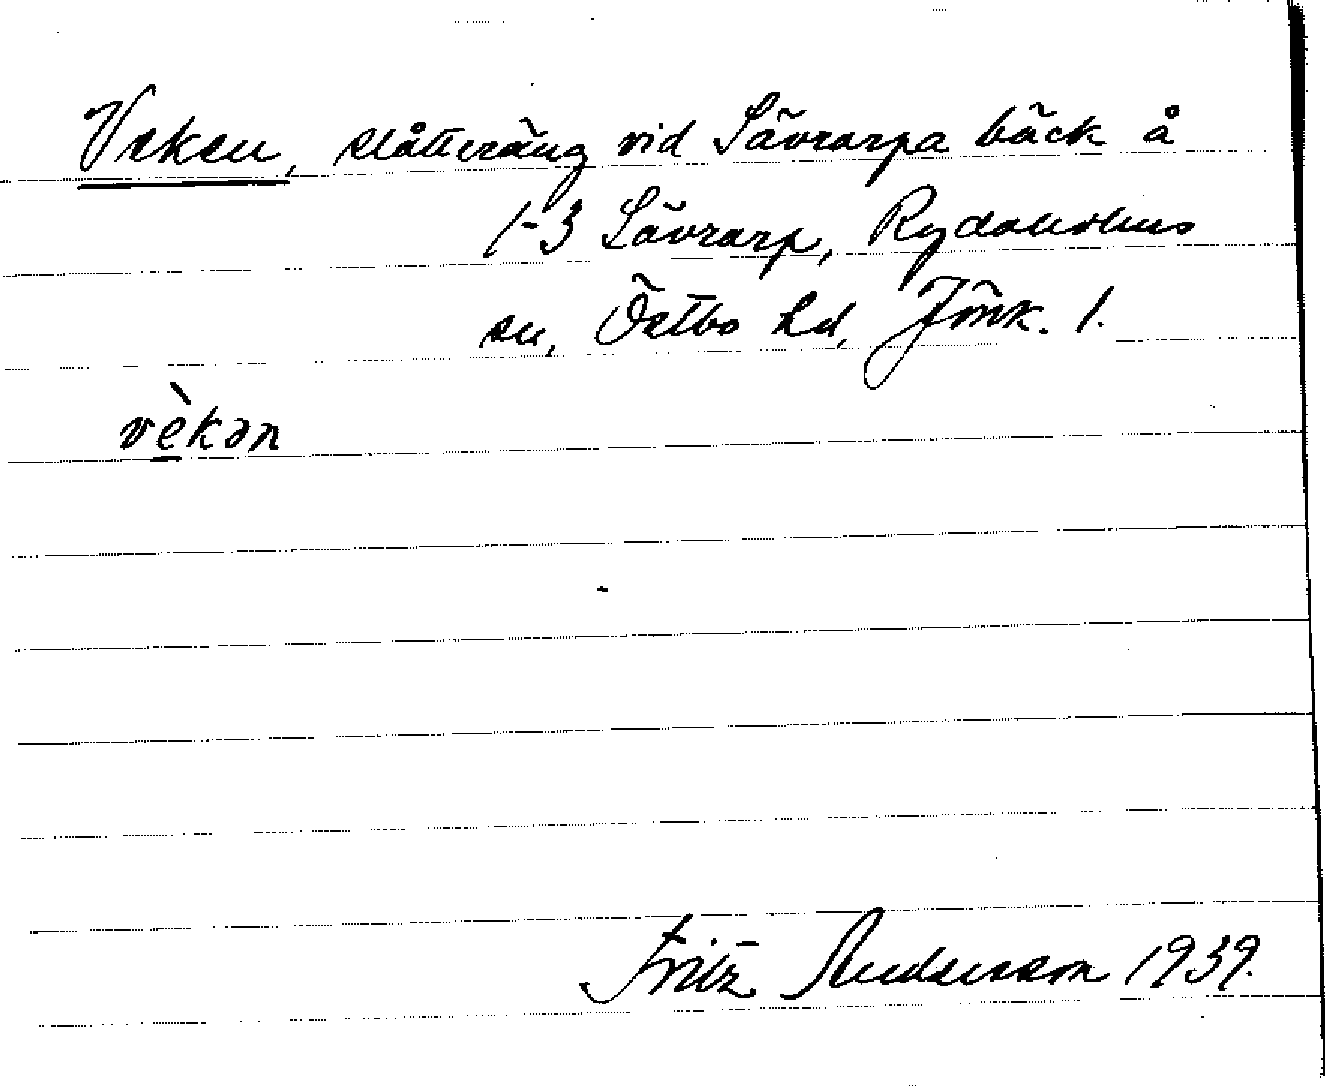 Veken, slåtteräng vid Sävrarpa bäck å
1-3 Sävrarp, Rydaholms
sn, Östbo hd, Jönk. l.
vèkən
Fritz Andersson 1939.